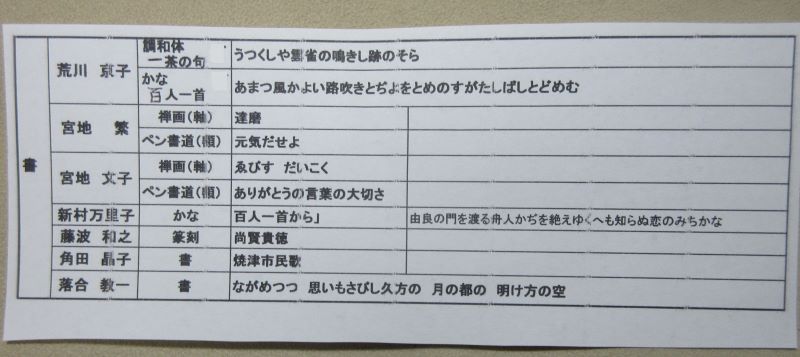 書
荒川 京子 調和体 一茶の句 うつくしや雲雀の鳴きし跡のそら
かな 百人一首 あまつ風かよい路吹きとぢよをとめのすがたしばしとどめむ
宮地 繁 禅画(軸) 達磨
ペン書道(額) 元気だせよ
宮地 文子 禅画(軸) ゑびす だいこく
ペン書道(額) ありがとうの言葉の大切さ
新村万里子 かな 百人一首から」 由良の門を渡る舟人かぢを絶えゆくへも知らぬ恋のみちかな
藤波 和之 篆刻 尚賢貴徳
角田 晶子 書 焼津市民歌
落合 教一 書 ながめつつ 思いもさびし久方の 月の都の 明け方の空